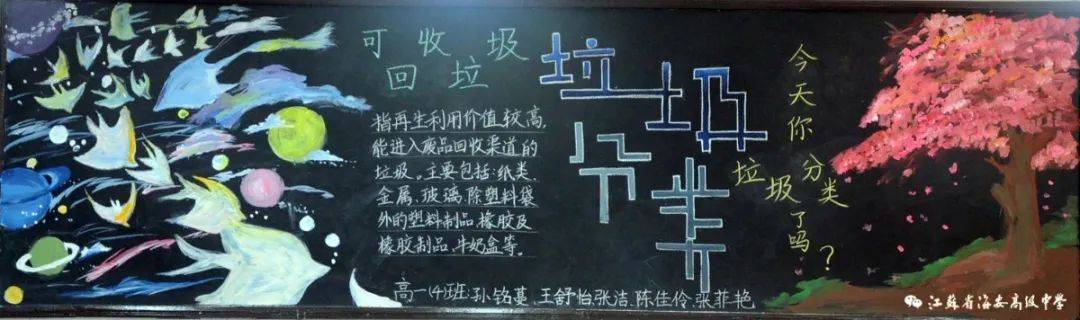 可收圾
回垃
指再生利用价值较高,
能进入废品回收渠道的
垃圾。主要包括:纸类、
金属、玻璃、除塑料袋
外的塑料制品、橡胶及
橡胶制品、牛奶盒等。
垃圾
分类
今天你分类了吗?
垃圾
高一(4)班:孙铭蔓、王舒怡、张洁、陈佳伶、张菲艳
江苏省海安高级中学